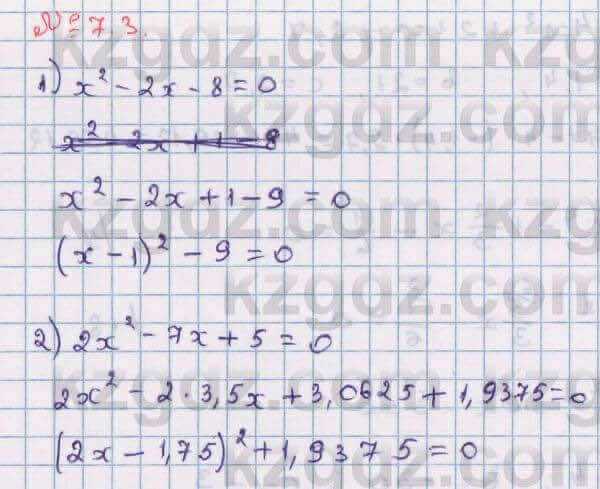 № 7.3.
1) x² - 2x - 8 = 0
x² - 2x + 1 - 9 = 0
(x - 1)² - 9 = 0
2) 2x² - 7x + 5 = 0
2x² - 2 · 3,5x + 3,0625 + 1,9375 = 0
(2x - 1,75)² + 1,9375 = 0
kzgdz.com